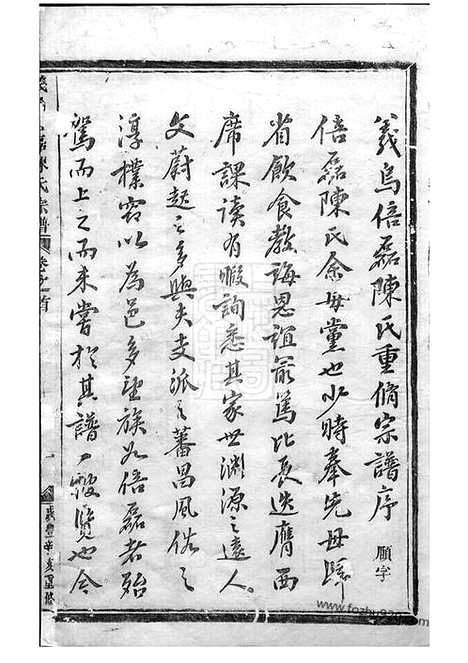 義烏倍磊陳氏重脩宗譜序 願字
倍磊陳氏余母黨也少時奉先母歸
省飲食教誨恩誼最篤比長迭膺西
席課讀有暇詢悉其家世淵源之遠人
文蔚起之多與夫支派之蕃昌風俗之
淳樸竊以為邑多望族如倍磊者殆
駕而上之而未嘗於其譜一寓覽也今
陳氏宗譜
卷之首
咸豐辛亥重修
www.fozhu920.com